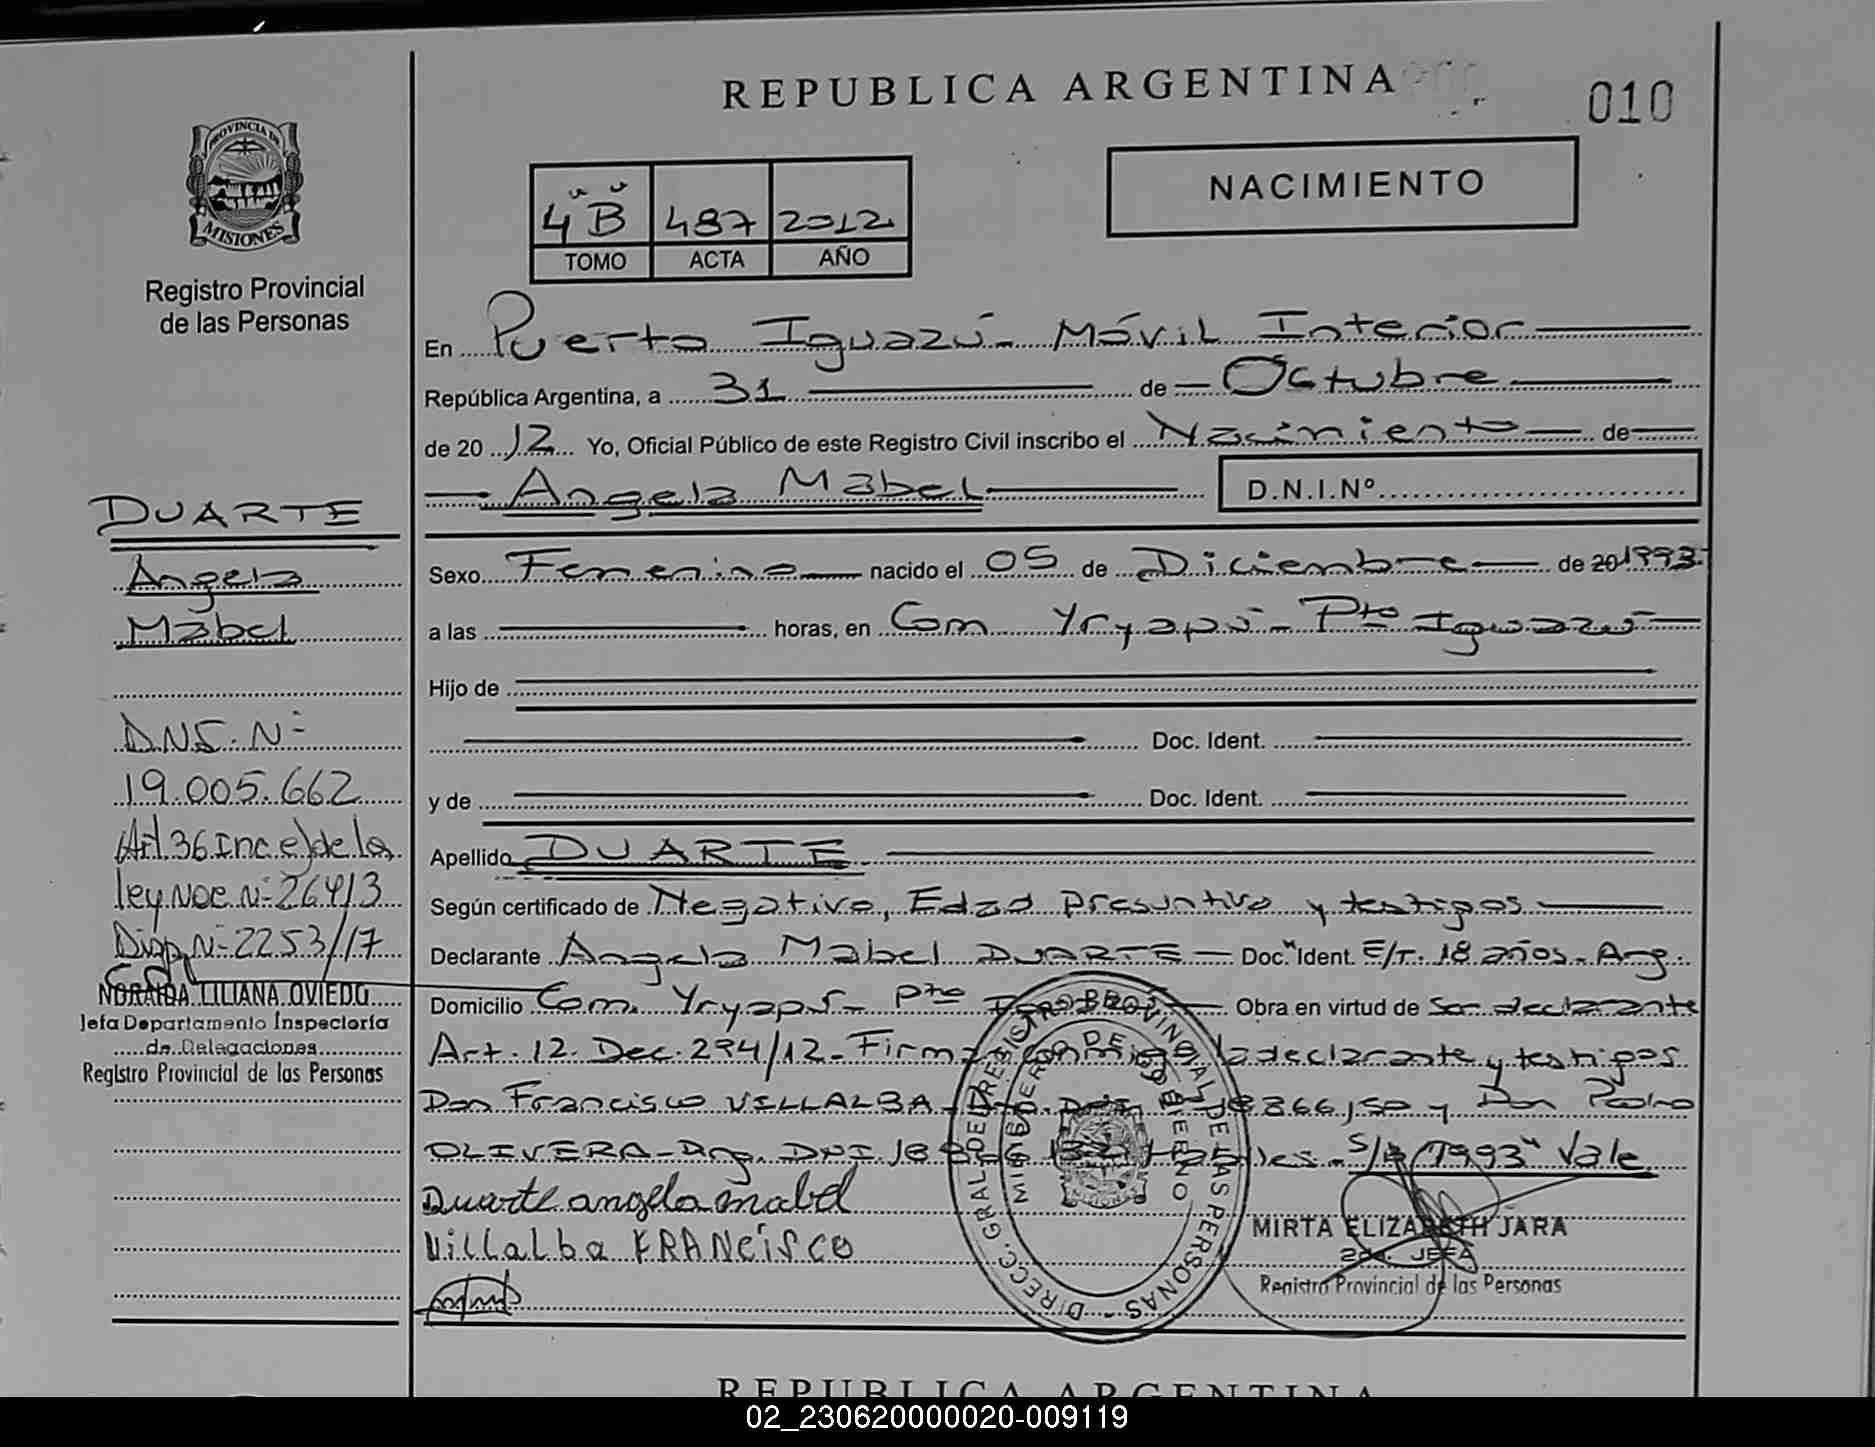 REPUBLICA ARGENTINA
010
PROVINCIA DE
MISIONES
Registro Provincial
de las Personas
4" B" 487 2012
TOMO ACTA AÑO
NACIMIENTO
En Puerto Iguazú - Móvil Interior
República Argentina, a 31 de Octubre
de 20 12 Yo, Oficial Público de este Registro Civil inscribo el Nacimiento de
Angela Mabel D.N.I.Nº
Sexo Femenino nacido el 05 de Diciembre de 20 1993
a las horas, en Com Yryapú - Pto Iguazú
Hijo de
Doc. Ident.
y de Doc. Ident.
Apellido DUARTE
Según certificado de Negativo, Edad presuntiva y testigos
Declarante Angela Mabel DUARTE Doc. Ident. E/T. 18 años. Arg.
Domicilio Com. Yryapú - Pto Obra en virtud de Ser declarante
Art. 12. Dec. 294/12 - Firma conmigo la declarante y testigos
Don Francisco VILLALBA y Don Pedro
OLIVERA - Arg. DNI 18 S/R "1993" Vale
Duarte angela mabel
Villalba FRANCISCO
MIRTA ELIZABETH JARA
2da. JEFA
Registro Provincial de las Personas
DIRECC. GRAL. DEL REGISTRO PROVINCIAL DE LAS PERSONAS
MINISTERIO DE GOBIERNO
DUARTE
Angela
Mabel
DNI. Nº
19.005.662
Art. 36 Inc e) de la
ley NOC Nº 26413
Disp. Nº 2253/17
NORAIDA LILIANA OVIEDO
Jefa Departamento Inspectoría
de Delegaciones
Registro Provincial de las Personas
REPUBLICA ARGENTINA
02_230620000020-009119